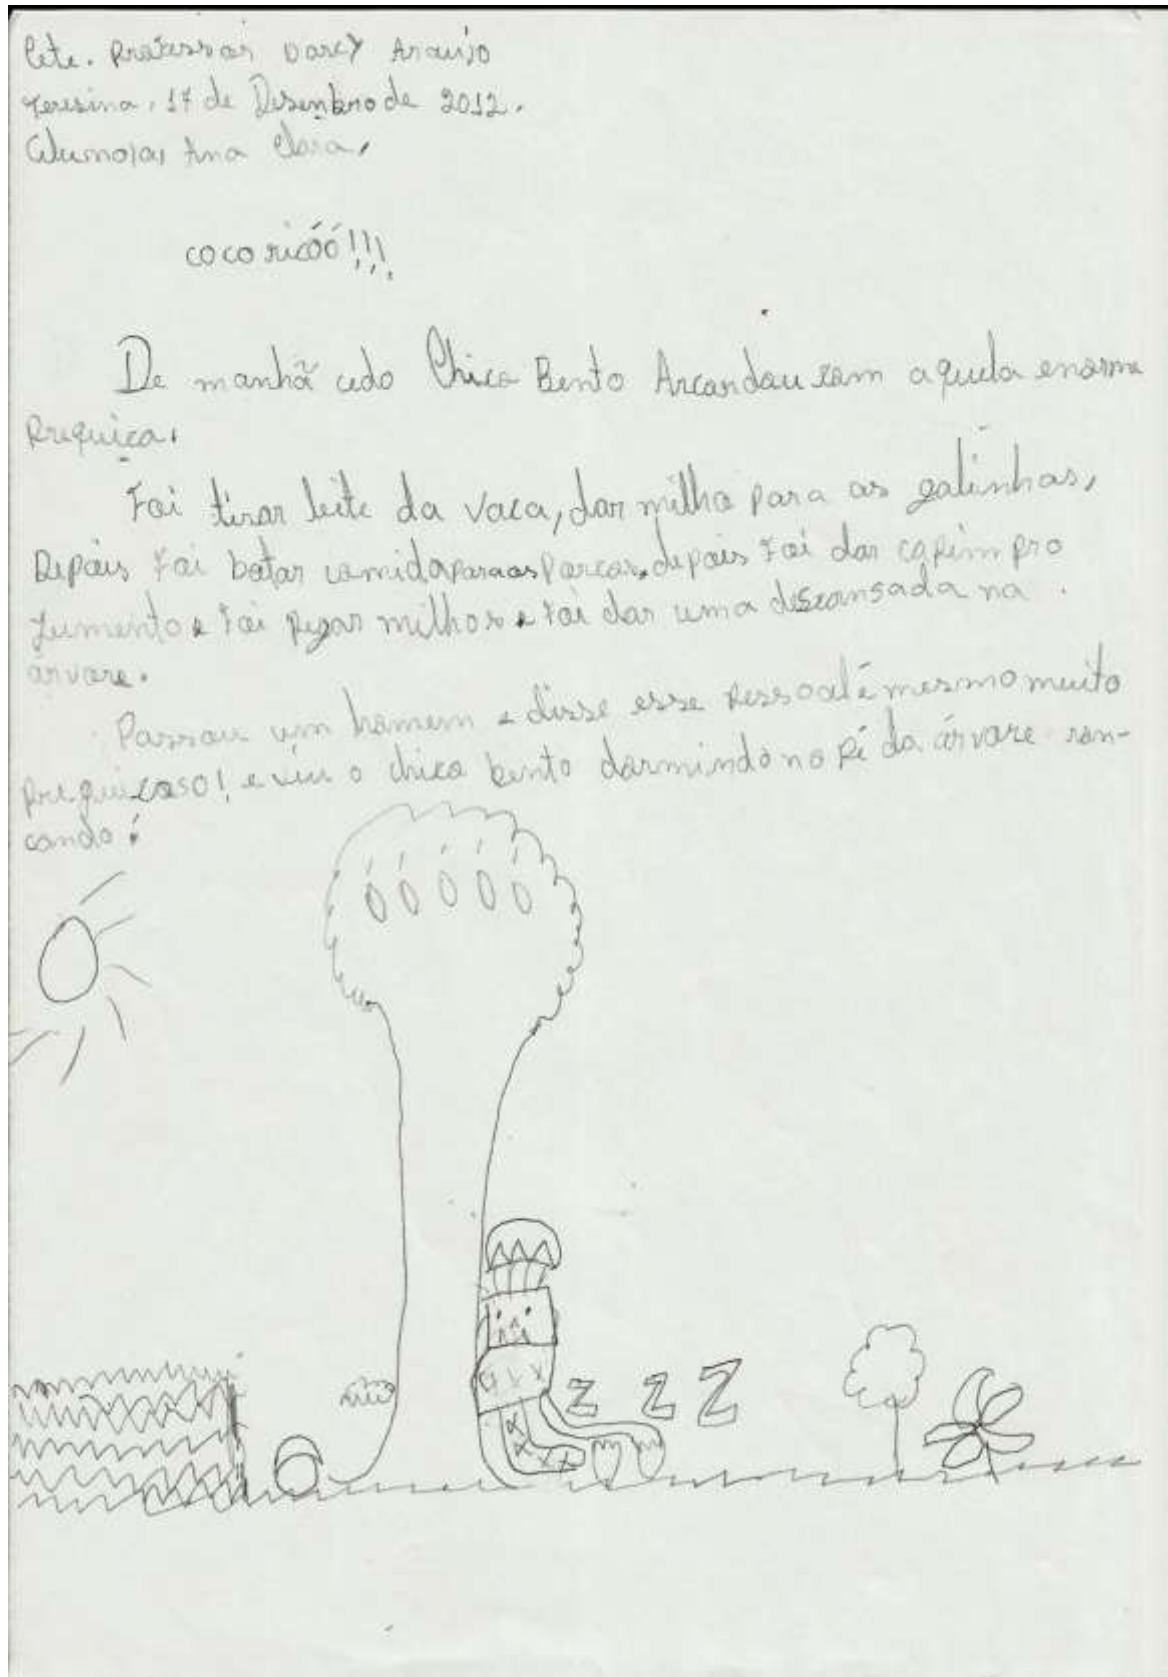 Cete. Professor Darcy Araujo
Teresina, 17 de Desembro de 2012.
Aluno(a) Ana Clara,
cocoricóó!!!
De manhã cedo Chico Bento Arcordou com aquela enorme
Preguiça.
Foi tirar leite da vaca, dar milho para as galinhas,
Depois foi botar comida para os porcos, depois foi dar capim pro
Jumento e foi pegar milhos e foi dar uma descansada na
árvore.
Passou um homem e disse esse pessoal é mesmo muito
preguiçoso! e viu o chico bento dormindo no pé da árvore ron-
cando!
Z Z Z